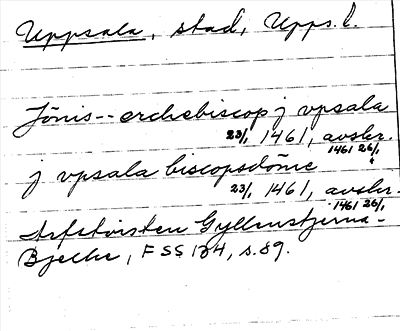 Uppsala, stad, Upps. l.
Jönis -- erchebiscop j vpsala
23/1 1461, avskr.
1461 26/1
j vpsala biscopsdöme
23/1 1461, avskr.
1461 26/1
Arfstvisten Gyllenstjerna-
Bjelke, FSS 1:4, s. 89.